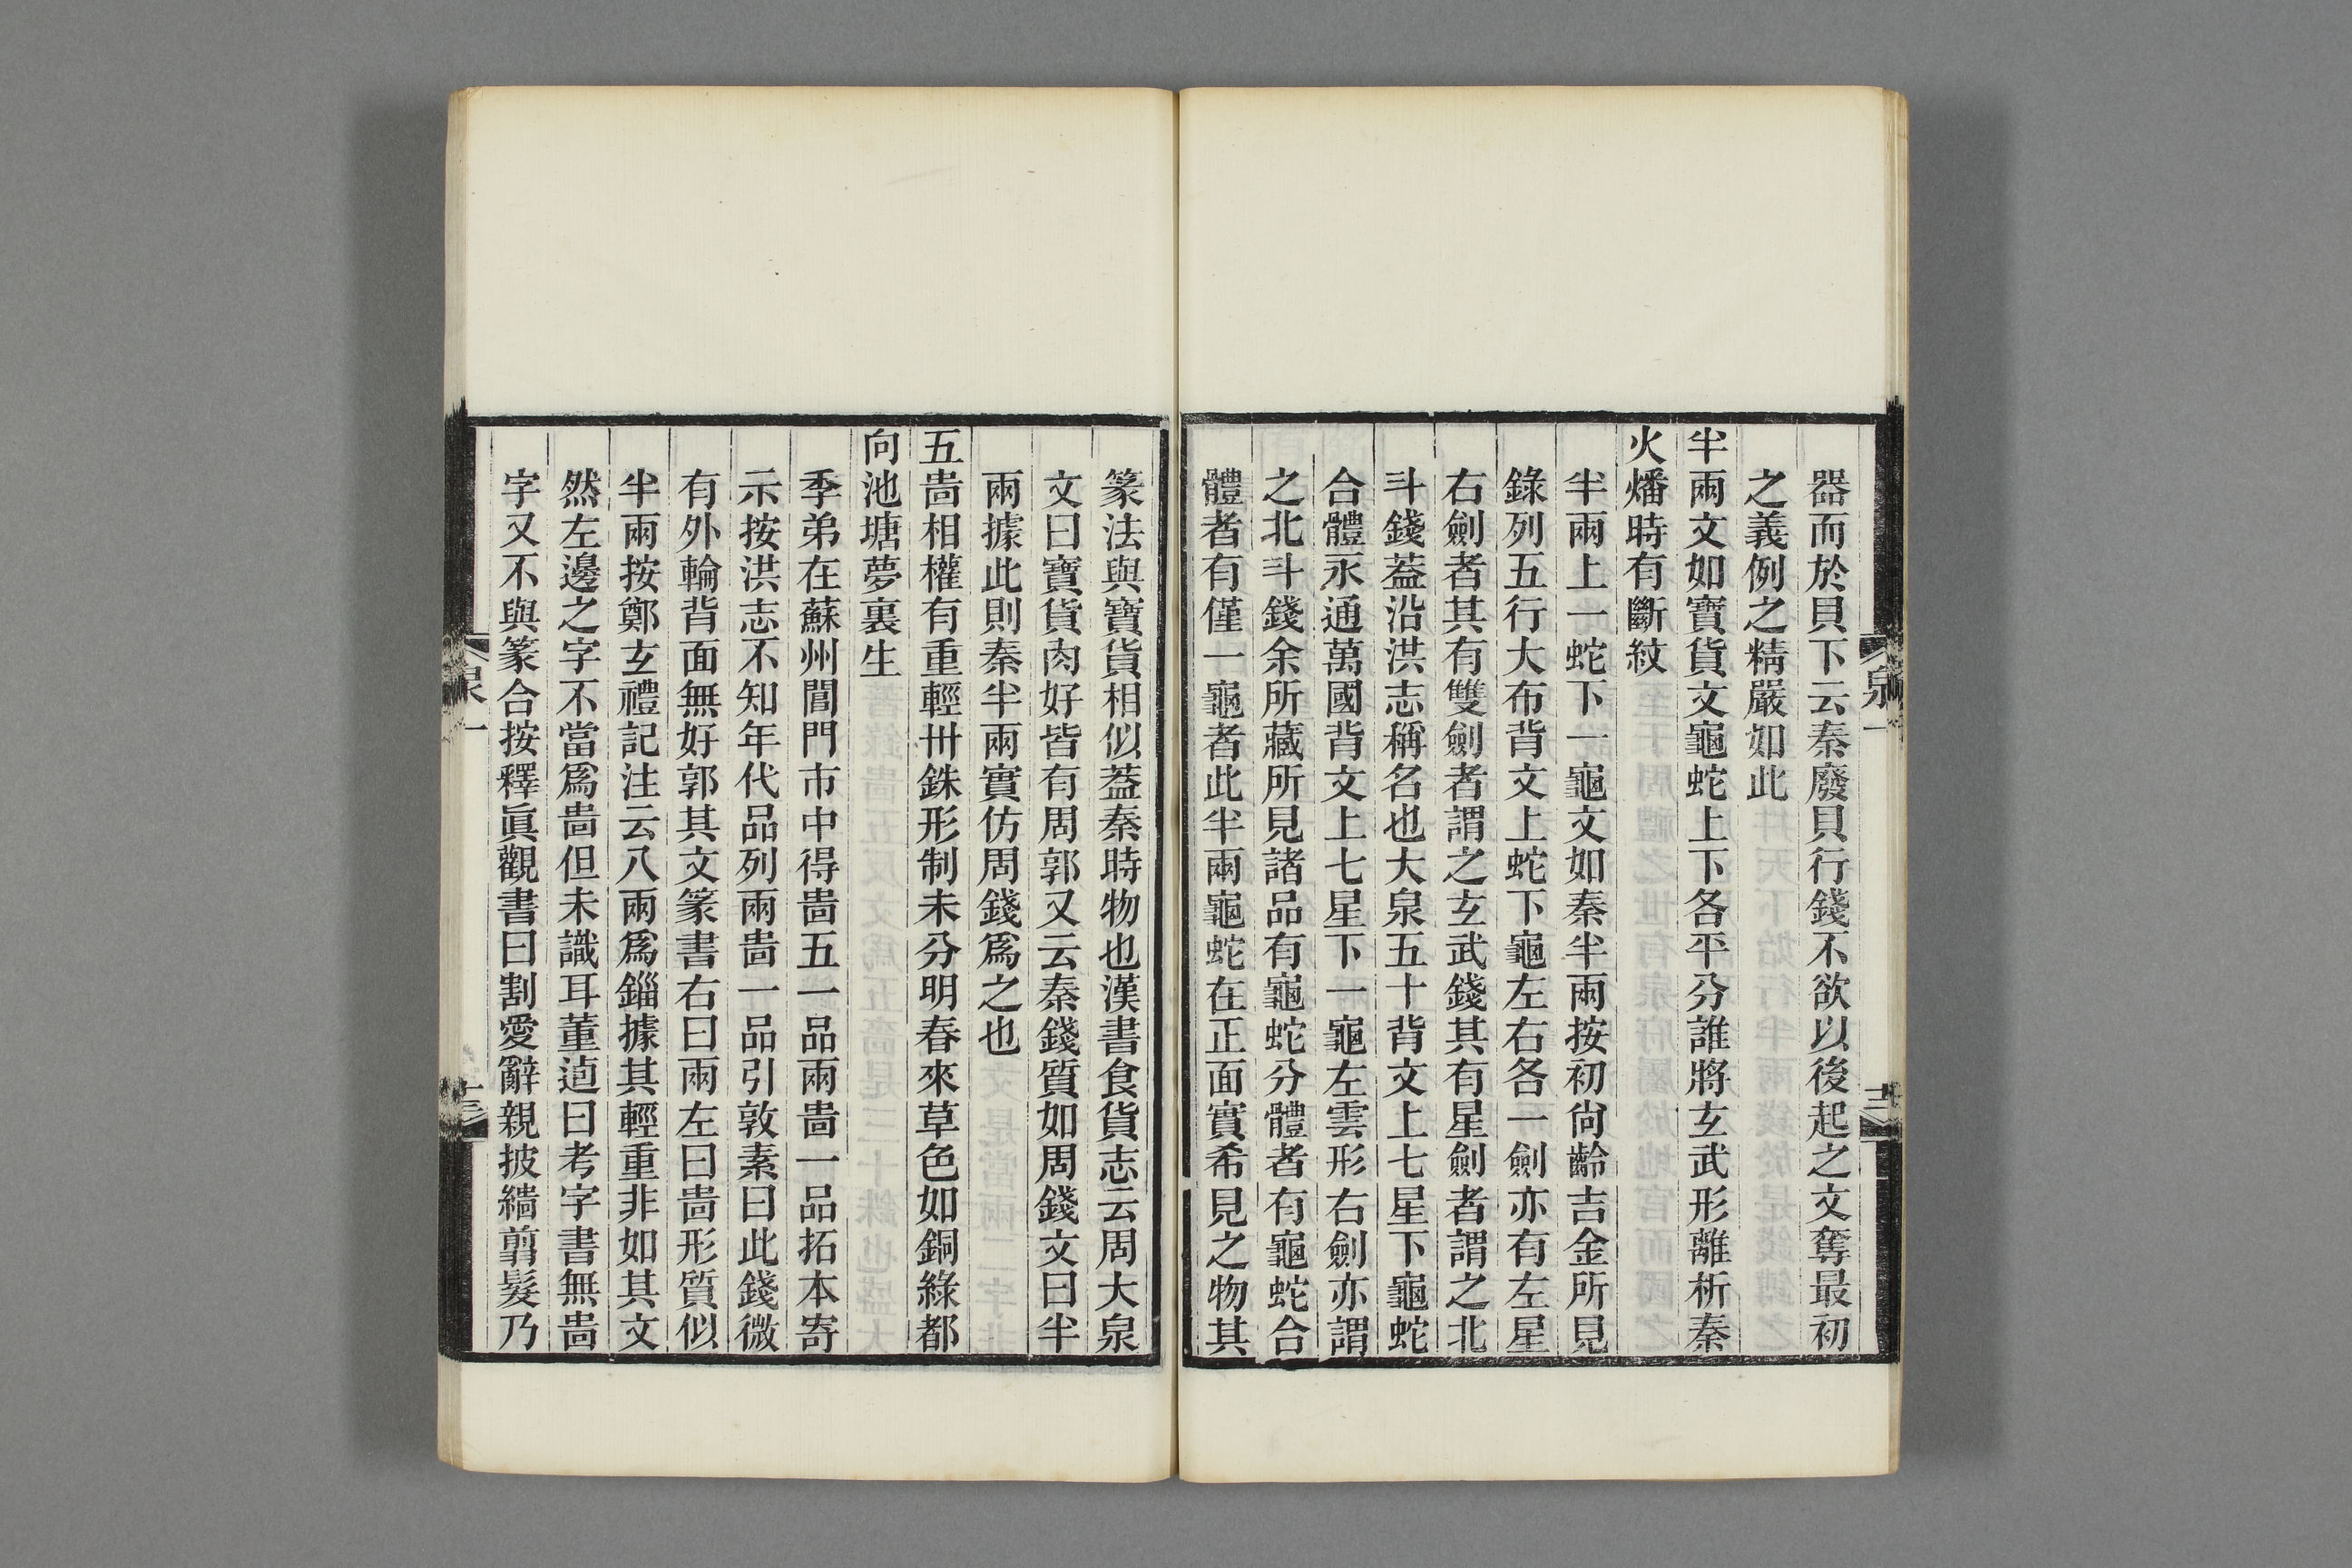 器而於貝下云秦廢貝行錢不欲以後起之文奪最初
之義例之精嚴如此
半兩文如寶貨文龜蛇上下各平分誰將玄武形離析秦
火燔時有斷紋
半兩上一蛇下一龜文如秦半兩按初尙齡吉金所見
錄列五行大布背文上蛇下龜左右各一劍亦有左星
右劍者其有雙劍者謂之玄武錢其有星劍者謂之北
斗錢葢沿洪志稱名也大泉五十背文上七星下龜蛇
合體永通萬國背文上七星下一龜左雲形右劍亦謂
之北斗錢余所藏所見諸品有龜蛇分體者有龜蛇合
體者有僅一龜者此半兩龜蛇在正面實希見之物其
泉一
十二
篆法與寶貨相似葢秦時物也漢書食貨志云周大泉
文曰寶貨肉好皆有周郭又云秦錢質如周錢文曰半
兩據此則秦半兩實仿周錢爲之也
五𤰞相權有重輕卅銖形制未分明春來草色如銅綠都
向池塘夢裏生
季弟在蘇州閶門市中得𤰞五一品兩𤰞一品拓本寄
示按洪志不知年代品列兩𤰞一品引敦素曰此錢微
有外輪背面無好郭其文篆書右曰兩左曰𤰞形質似
半兩按鄭玄禮記注云八兩爲錙據其輕重非如其文
然左邊之字不當爲𤰞但未識耳董逌曰考字書無𤰞
字又不與篆合按釋眞觀書曰割愛辭親披繢翦髮乃
泉一